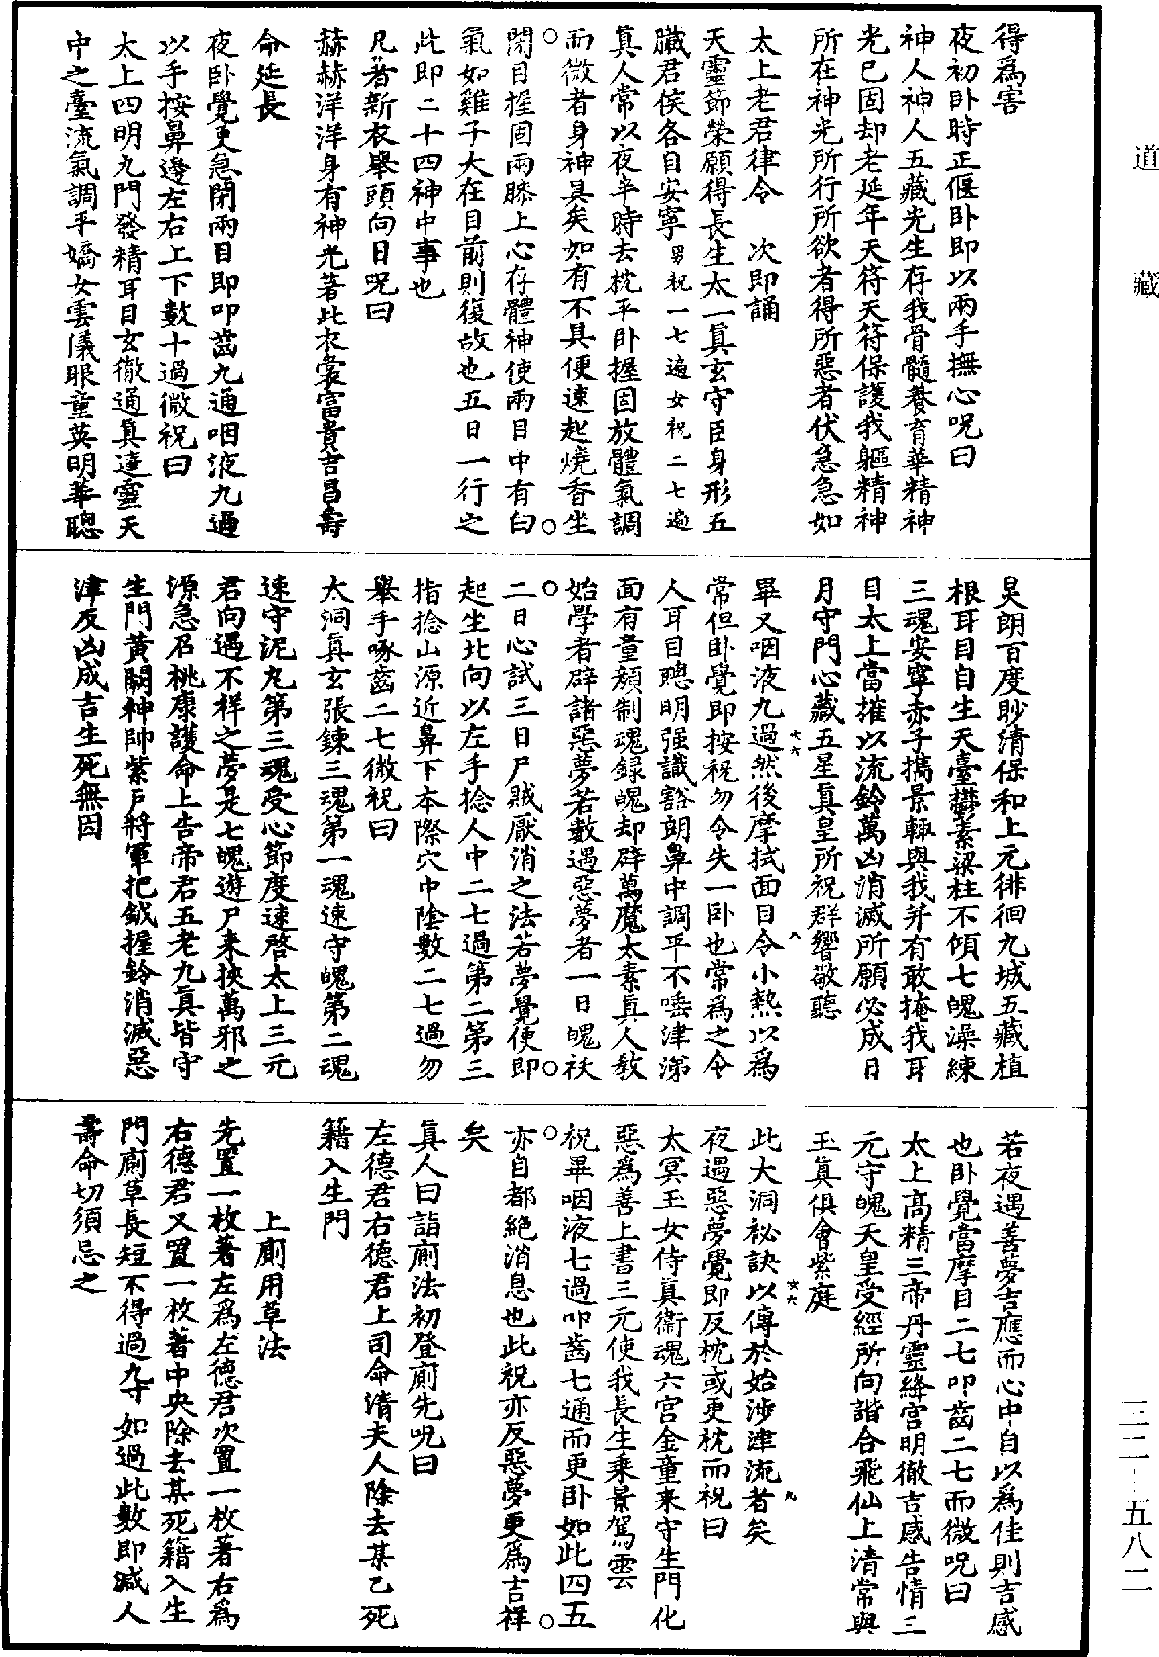 道藏
得爲害
夜初卧時正偃卧即以兩手撫心呪曰
神人神人五藏光生存我骨髓養育華精神
光已固却老延年天符天符保護我軀精神
所在神光所行所欲者得所惡者伏急急如
太上老君律令　次即誦
天靈節榮願得長生太一真玄守臣身形五
臟君侯各自安寧男祝一七遍女祝二七遍
真人常以夜半時去枕平卧握固放體氣調
而微者身神具矣如有不具便速起燒香坐
閉目握固兩膝上心存體神使兩目中有白
氣如雞子大在目前則復故也五日一行之
此即二十四神中事也
凡著新衣舉頭向日呪曰
赫赫洋洋身有神光著此衣裳富貴吉昌壽
命延長
夜卧覺更急閉兩目即叩齒九通咽液九過
以手按鼻邊左右上下數十過微祝曰
太上四明九門發精耳目玄徹通真達靈天
中之臺流氣調平嬌女雲儀眼童英明華聰
晃朗百度眇清保和上元徘徊九城五藏植
根耳目自生天臺鬱素梁柱不傾七魄澡練
三魂安寧赤子攜景輒與我并有敢掩我耳
目太上當摧以流鈴萬凶消滅所願必成日
月守門心藏五星真皇所祝群響敬聽
畢又咽液九過然後摩拭面目令小熱以爲
常但卧覺即按祝勿令失一卧也常爲之令
人耳目聰明强識豁朗鼻中調平不唾津涕
面有童顏制魂録魄却辟萬魔太素真人教
始學者辟諸惡夢若數遇惡夢者一曰魄祅
二曰心試三曰尸賊厭消之法若夢覺便即
起生北向以左手捻人中二七過第二第三
指捻山源近鼻下本際穴中陰數二七過勿
舉手啄齒二七微祝曰
大洞真玄張鍊三魂第一魂速守魄第二魂
速守泥丸第三魂受心節度速啓太上三元
君向遇不祥之夢是七魄遊尸來挾萬邪之
源急召桃康護命上告帝君五老九真皆守
生門黄闕神帥紫戶將軍把鉞握鈴消滅惡
津反凶成吉生死無因
若夜遇善夢吉應而心中自以爲佳則吉感
也卧覺當摩目二七叩齒二七而微呪曰
太上高精三帝丹靈絳宫明徹吉感告情三
元守魄天皇受經所向諧合飛仙上清常與
玉真俱會紫庭
此大洞祕訣以傳於始涉津流者矣
夜遇惡夢覺即反枕或更枕而祝曰
太冥玉女侍真衞魂六宫金童來守生門化
惡爲善上書三元使我長生乘景駕雲
祝畢咽液七過叩齒七通而更卧如此四五
亦自都絶消息也此祝亦反惡夢更爲吉祥
矣
真人曰詣廁法初登廁先呪曰
左德君右德君上司命清夫人除去某乙死
籍入生門
上廁用草法
先置一枚著左爲左德君次置一枚著右爲
右德君又置一枚著中央除去某死籍入生
門廁草長短不得過九寸如過此數即減人
壽命切須忌之
三二—五八二